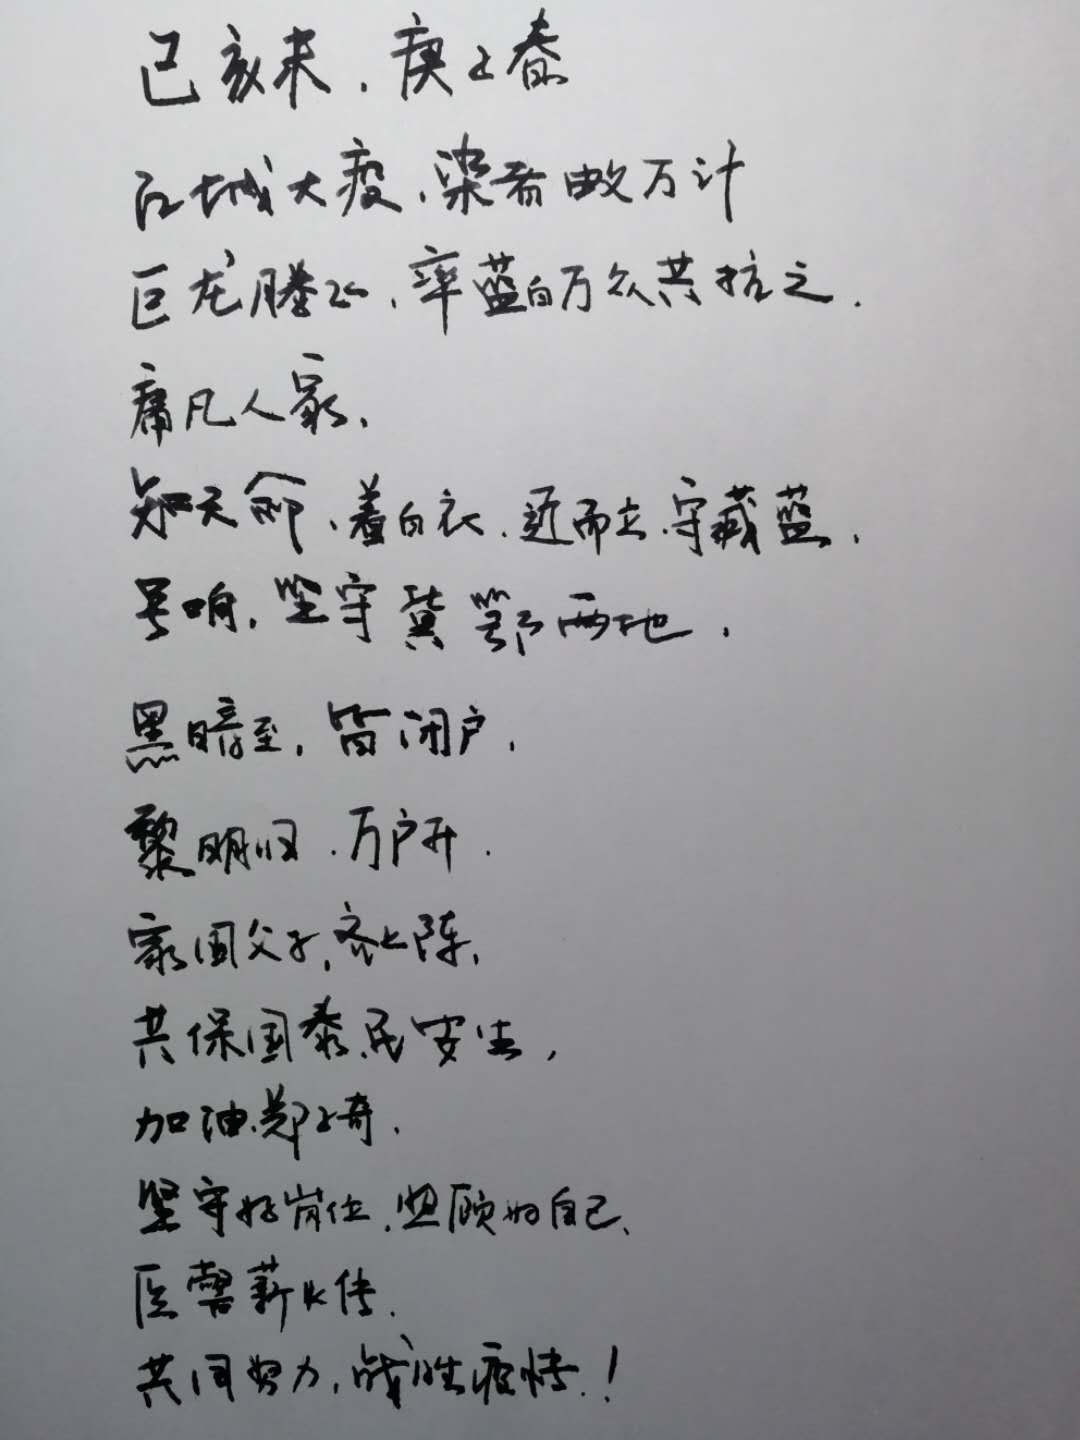 己亥末，庚子春
江城大疫，染者数万计
巨龙腾飞，率蓝白万众共抗之。
庸凡人家，
知天命，着白衣，近而立，守藏蓝，
号响，坚守冀鄂两地，
黑暗至，皆闭户，
黎明归，万户开．
家国父子，齐上阵，
共保国泰民安生，
加油，郑子奇．
坚守好岗位，照顾好自己、
医警薪火传．
共同努力，战胜疫情．！